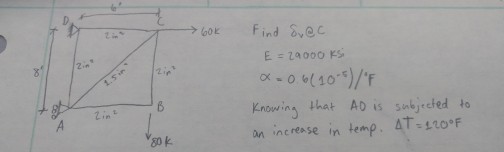 6'
D
C
60K
2in²
8'
2in²
2.5in²
2in²
2in²
A
B
80K
Find δv@C
E = 29000 KSI
α = 0.6(10⁻⁵)/°F
Knowing that AD is subjected to
an increase in temp. ΔT=120°F